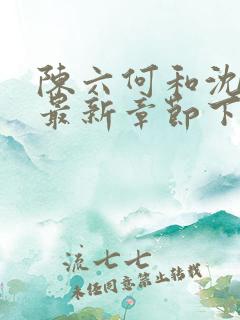 陳六何和沈
最新章節下
流七七
未经同意禁止转载